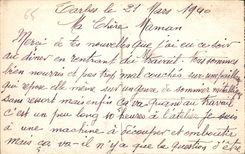 65
Tarbes le 21 Mars 1940
Ma Chère Maman
Merci de tes nouvelles que j'ai eu ce soir
au dîner en rentrant du travail. nous sommes
bien nourris et pas trop mal couchés sur un paillasse
qui repose elle même sur un espèce de sommier métallique
sans ressort mais enfin ça va quand au travail
c'est un peu long 10 heures à l'atelier je suis
à une machine à découper et emboutir
mais ça va il n'y a que la question d'être